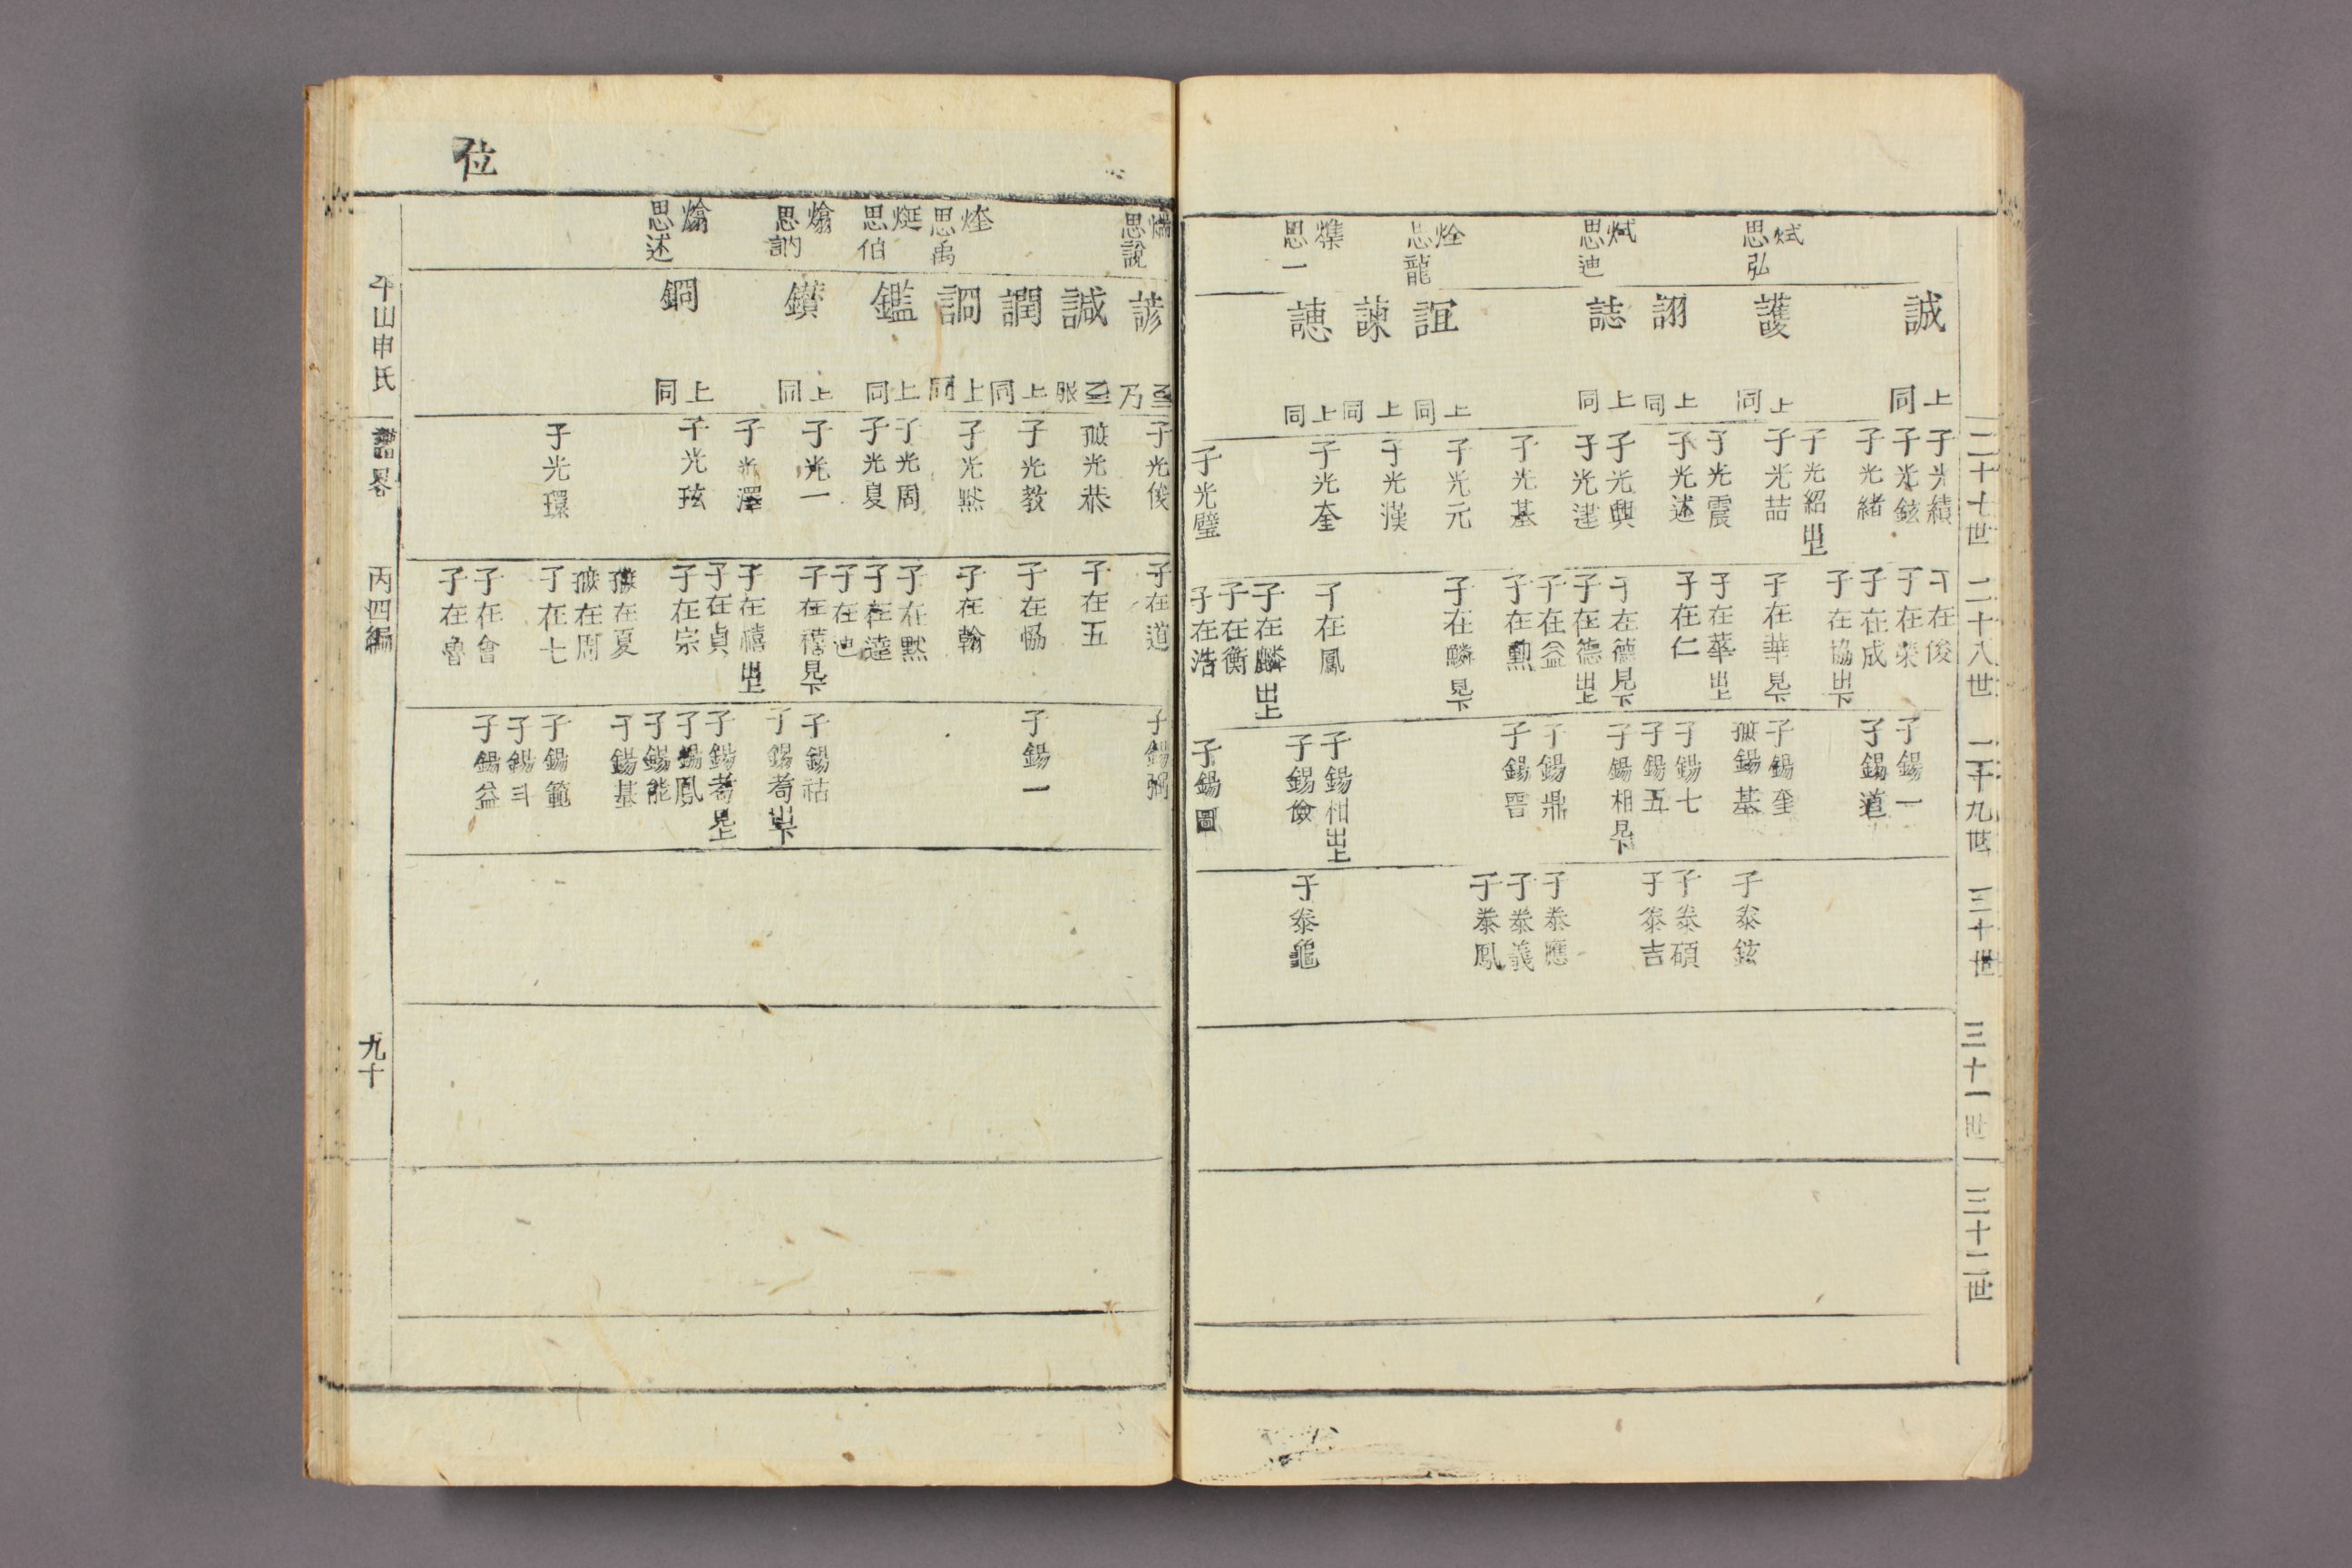 二十七世
二十八世
二十九世
三十世
三十一世
三十二世
烒 思弘
烒 思迪
烇 思龍
㸅 思一
誠 上同
護 上同
詡 上同
誌 上同
誼 上同
諫 上同
譓 上同
子光績
子光鉉
子光緒
子光紹出上
子光喆
子光震
子光述
子光興
子光運
子光基
子光元
子光漢
子光奎
子光璧
子在俊
子在榮
子在成
子在協出下
子在華見下
子在華出上
子在仁
子在德見下
子在德出上
子在益
子在勲
子在麟見下
子在鳳
子在麟出上
子在衡
子在浩
子錫一
子錫道
子錫奎
孫錫基
子錫七
子錫五
子錫相見下
子錫鼎
子錫晋
子錫相出上
子錫儉
子錫圖
子泰鉉
子泰碩
子泰吉
子泰應
子泰義
子泰鳳
子泰龜
位
思說
烾 思禹
烶 思伯
熻 思訥
熻 思述
諺
諴
譋 上同
詗 上同
鑑 上同
鑽 上同
鋼 上同
子光俊
光恭
子光教
子光熙
子光周
子光夏
子光一
子光澤
子光玹
子光環
子在道
子在五
子在恊
子在翰
子在默
子在逵
子在迪
子在禧見下
子在禧出上
子在貞
子在宗
在夏
在周
子在七
子在會
子在魯
子錫弼
子錫一
子錫祜
子錫耈出下
子錫耈見上
子錫鳳
子錫能
子錫基
子錫範
子錫斗
子錫益
平山申氏
譜畧
丙四編
九十